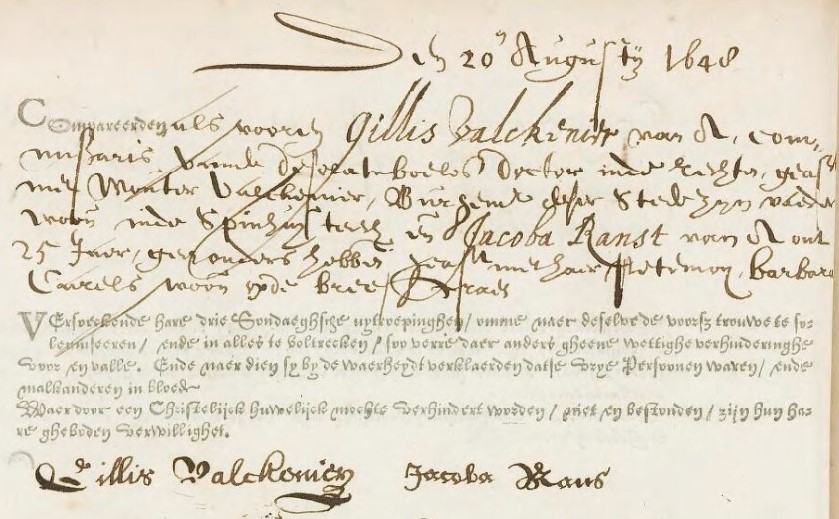 Den 20 Augusty 1648
Compareerden als vooren Gillis Valckenier van A, com-
missaris vande desolate boelos Doctor inde Rechte, geass
met Wouter Valckenier, Burgem deser Stede zyn vader
woon inde Spinhuys steech en Jacoba Ranst van A out
25 Jaer, geen ouders hebben geass met haer Petemoy, barbara
Carels woon opde bree straet
VErsoeckende hare drie Sondaeghsche uytroepinghen / omme naer deselve de voorsz trouwe te so-
lemniseeren / ende in alles te voltrecken / soo verre daer anders gheene wettighe verhinderinghe
voor en valle. Ende naer dien sy by de waerheydt verklaerden datse vrye Persoonen waren / ende
malkanderen in bloede
Waer door een Christelijck huwelijck mochte verhindert worden / niet en bestonden / zijn hun ha-
re gheboden verwillighet.
Gillis Valckenier Jacoba Rans